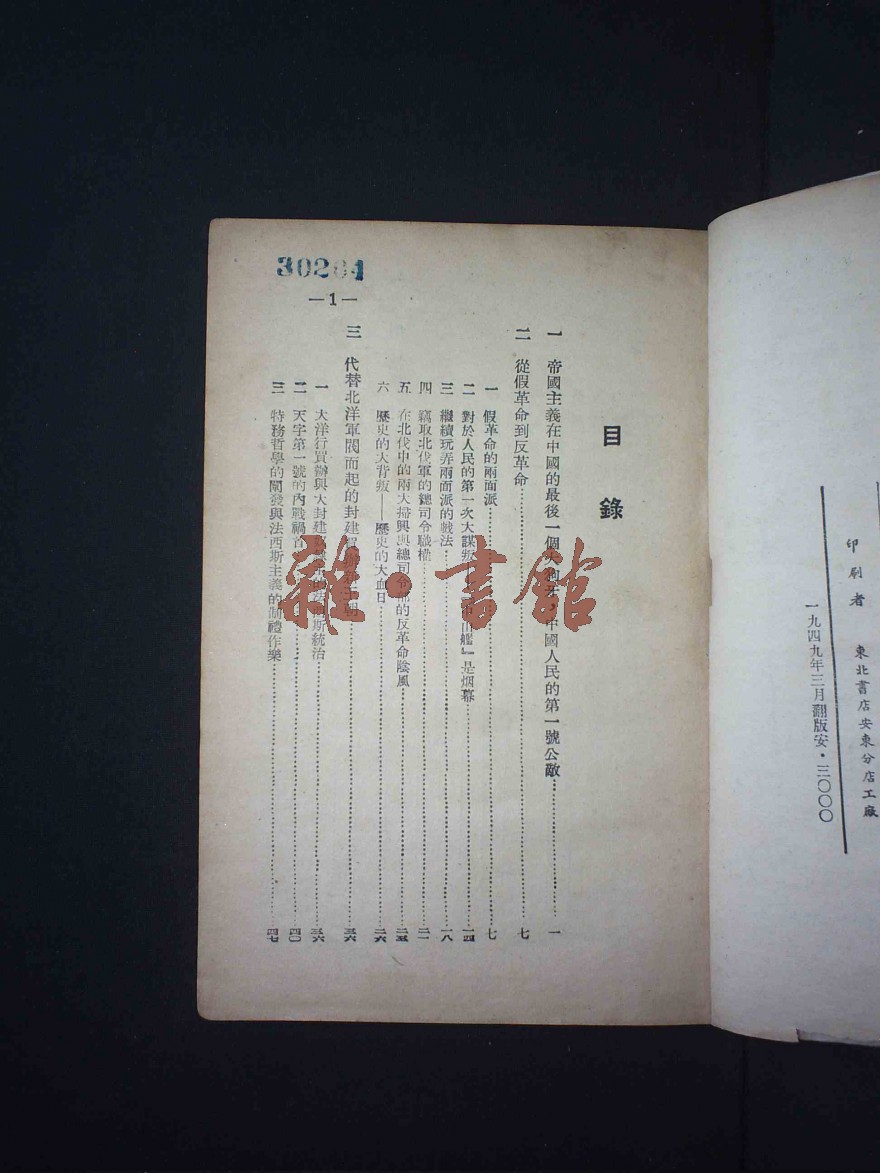 印刷者 東北書店安東分店工廠
一九四九年三月翻版安·三〇〇〇
30204
—1—
目錄
一 帝國主義在中國的最後一個 中國人民的第一號公敵 一
二 從假革命到反革命 七
一 假革命的兩面派 七
二 對於人民的第一次大謀叛 山艦』是烟幕 一四
三 繼續玩弄兩面派的戲法 一八
四 竊取北伐軍的總司令職權 二一
五 在北伐中的兩大掃興與總司令部的反革命陰風 二五
六 歷史的大背叛——歷史的大血日 二六
三 代替北洋軍閥而起的封建買 朝 三六
一 大洋行買辦與大封建 斯統治 三六
二 天字第一號的內戰禍首 四〇
三 特務哲學的闡發與法西斯主義的制禮作樂 四七
雜·書館